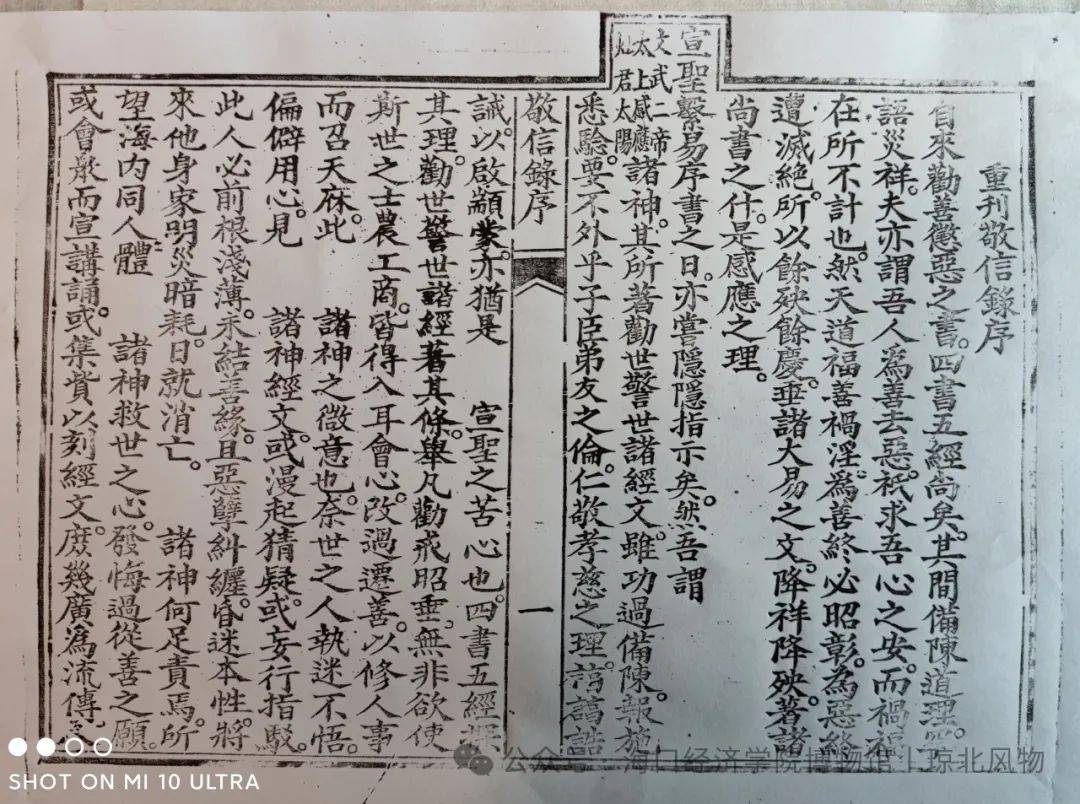 重刊敬信錄序
自來勸善懲惡之書。四書五經尚矣。其間備陳道理。
語災祥。夫亦謂吾人為善去惡。祇求吾心之安。而禍福
在所不計也。然天道福善禍淫。為善終必昭彰。為惡終
遭滅絕。所以餘殃餘慶。垂諸大易之文。降祥降殃。著諸
尚書之什。是感應之理。
宣聖繫易序書之日。亦嘗隱隱指示矣。然吾謂
文武二帝
太上感應
灶君太陽
諸神。其所著勸世警世諸經文。雖功過備陳。報施
悉驗。要不外乎子臣弟友之倫。仁敬孝慈之理。諄諄誥
敬信錄序
一
誡。以啟顓蒙。亦猶是 宣聖之苦心也。四書五經探
其理。勸世警世諸經著其條。舉凡勸戒昭垂。無非欲使
斯世之士農工商。皆得入耳會心。改過遷善。以修人事
而召天庥。此 諸神之微意也。奈世之人執迷不悟。
偏僻用心。見 諸神經文。或漫起猜疑。或妄行指駁。
此人必前根淺薄。未結善緣。且惡孽糾纏。昏迷本性。將
來他身家明災暗耗。日就消亡。 諸神何足責焉。所
望海內同人。體 諸神救世之心。發悔過從善之願。
或會衆而宣講誦。或集貲以刻經文。庶幾廣為流傳。
公众号 海口经济学院博物馆|琼北风物
SHOT ON MI 10 ULTRA